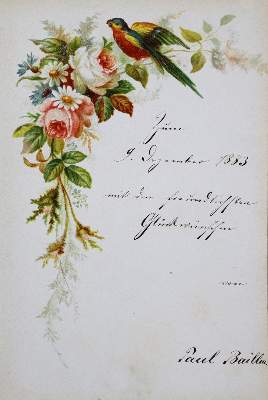 Zum
9. Dezember 1883
mit den freundlichsten
Glückwünschen
von
Paul